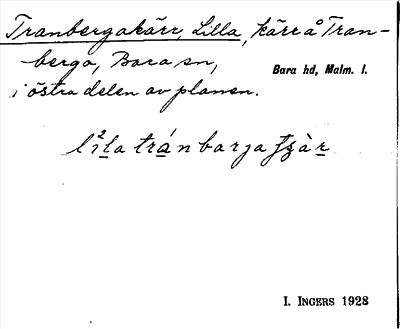 Tranbergakärr, Lilla, kärr å Tran-
berga, Bara sn,
Bara hd, Malm. l.
i östra delen av planen.
I. INGERS 1928